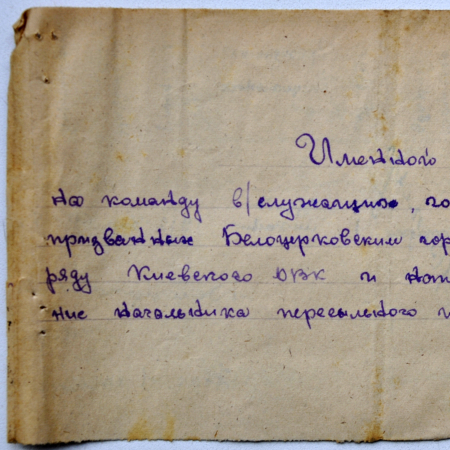 Именного
на команду в/служащих, го
призванных Белоцерковским гор
ряду Киевского ОВК и нап
ние начальника пересыльного п